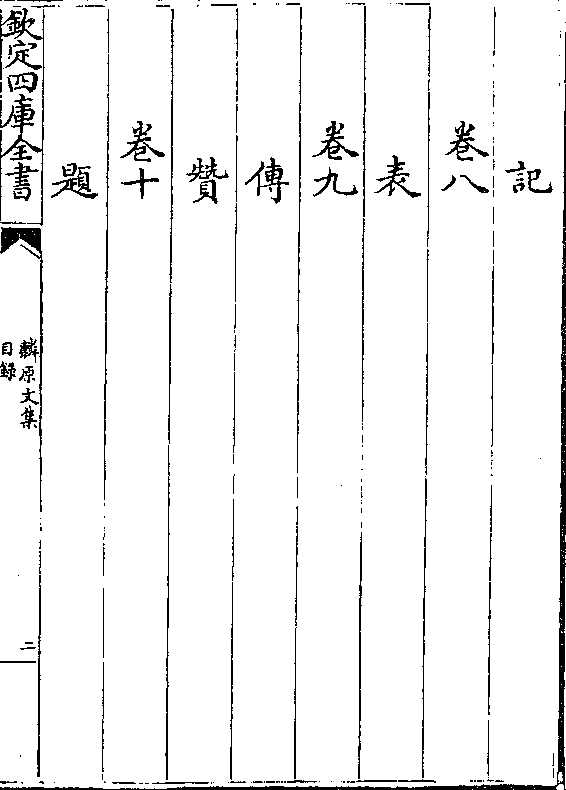 記
卷八
表
卷九
傳
贊
卷十
題
欽定四庫全書
麟原文集
目錄
二